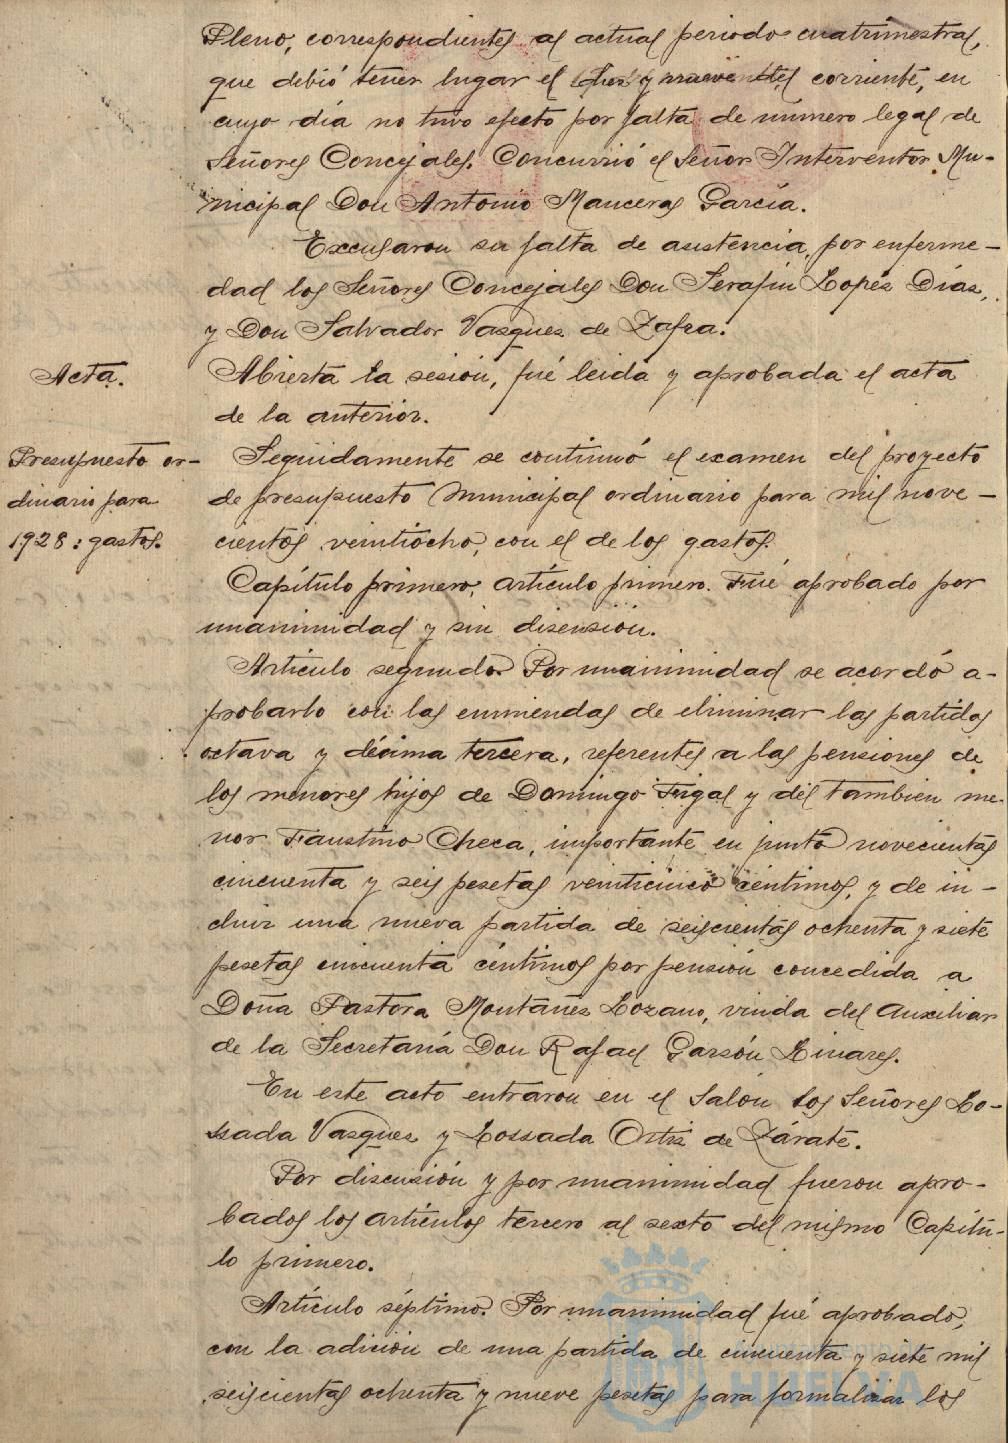 Pleno, correspondientes al actual periodo cuatrimestral,
que debió tener lugar el diez y nueve del corriente, en
cuyo día no tuvo efecto por falta de número legal de
Señores Concejales. Concurrió el Señor Interventor Mu-
nicipal Don Antonio Manceras García.
Excusaron su falta de asistencia, por enferme-
dad los Señores Concejales Don Serafín Lopés Días,
y Don Salvador Vasques de Zafra.
Acta.
Abierta la sesión, fué leida y aprobada el acta
de la anterior.
Presupuesto or-
dinario para
1928: gastos.
Seguidamente se continuó el examen del proyecto
de presupuesto municipal ordinario para mil nove-
cientos veintiocho, con el de los gastos.
Capítulo primero, artículo primero. Fué aprobado por
unanimidad y sin disensión.
Artículo segundo. Por unanimidad se acordó a-
probarlo con las enmiendas de eliminar las partidas
octava y décima tercera, referentes a las pensiones de
los menores hijos de Domingo Frigal y del tambien me-
nor Faustino Checa, importante en junto novecientas
cincuenta y seis pesetas veinticinco centimos, y de in-
cluir una nueva partida de seiscientas ochenta y siete
pesetas cincuenta céntimos por pensión concedida a
Doña Pastora Montañés Lozano, viuda del Auxiliar
de la Secretaría Don Rafael Garsón Linares.
En este acto entraron en el Salón los Señores Lo-
ssada Vasques y Lossada Ortis de Zárate.
Por discusión y por unanimidad fueron apro-
bados los artículos tercero al sexto del mismo Capítu-
lo primero.
Artículo séptimo. Por unanimidad fué aprobado,
con la adición de una partida de cincuenta y siete mil
seiscientas ochenta y nueve pesetas para formalisar los
HUELVA